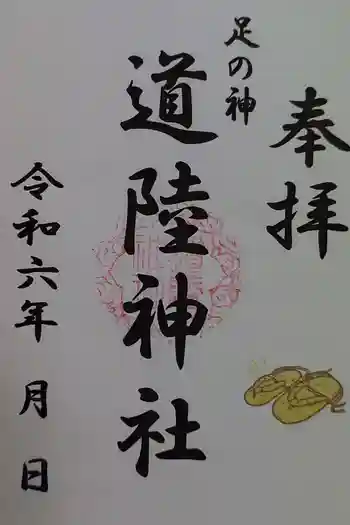 奉拝
足の神
道陸神社
令和六年 月 日